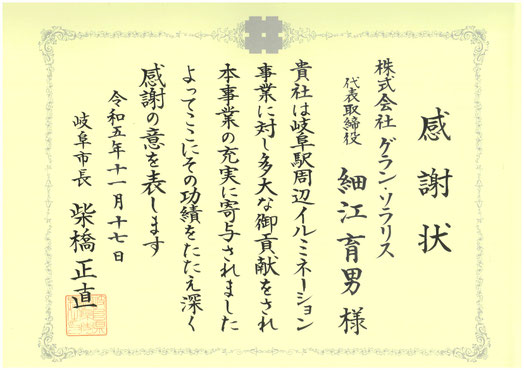 感謝状
株式会社 グラン・ソラリス
代表取締役 細江育男 様
貴社は岐阜駅周辺イルミネーション
事業に対し多大な御貢献をされ
本事業の充実に寄与されました
よってここにその功績をたたえ深く
感謝の意を表します
令和五年十一月十七日
岐阜市長 柴橋正直